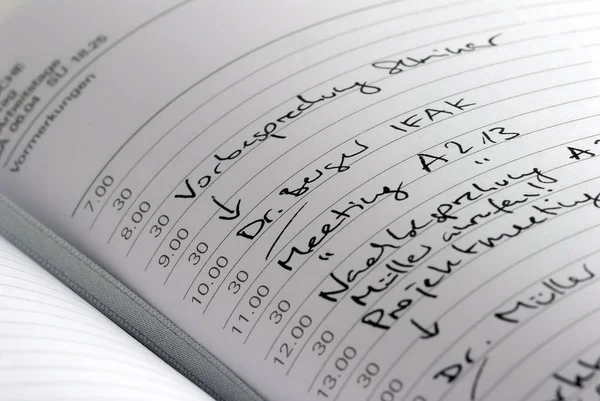 CHE
tag
Arbeitstage
A 06.04 SU 18.25
Vormerkungen
7.00
30
8.00 Vorbesprechung Seminar
30 ↓
9.00
30 Dr. Berger IFAK
10.00
30 Meeting A 2 13
11.00 " "
30 Nachbesprechung A
12.00 Müller anrufen!!
30 Projektmeeting
13.00 ↓
30 Dr. Müller